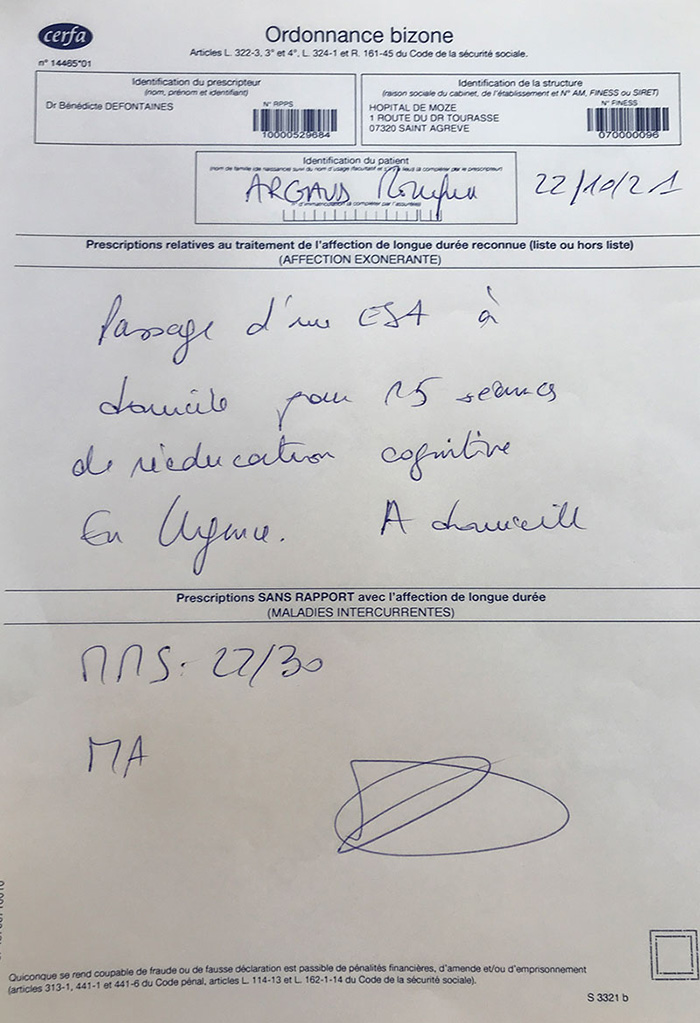 cerfa
n° 14465*01
Ordonnance bizone
Articles L. 322-3, 3° et 4°, L. 324-1 et R. 161-45 du Code de la sécurité sociale.
Identification du prescripteur
(nom, prénom et identifiant)
Dr Bénédicte DEFONTAINES
N° RPPS
10000529684
Identification de la structure
(raison sociale du cabinet, de l'établissement et N° AM, FINESS ou SIRET)
HOPITAL DE MOZE
1 ROUTE DU DR TOURASSE
07320 SAINT AGREVE
N° FINESS
070000096
Identification du patient
ARGAUD
22/10/21
Prescriptions relatives au traitement de l'affection de longue durée reconnue (liste ou hors liste)
(AFFECTION EXONERANTE)
Passage d'une ESA à
domicile pour 15 séances
de rééducation cognitive
En Urgence. A domicile
Prescriptions SANS RAPPORT avec l'affection de longue durée
(MALADIES INTERCURRENTES)
MMS: 27/30
MA
Quiconque se rend coupable de fraude ou de fausse déclaration est passible de pénalités financières, d'amende et/ou d'emprisonnement
(articles 313-1, 441-1 et 441-6 du Code pénal, articles L. 114-13 et L. 162-1-14 du Code de la sécurité sociale).
S 3321 b